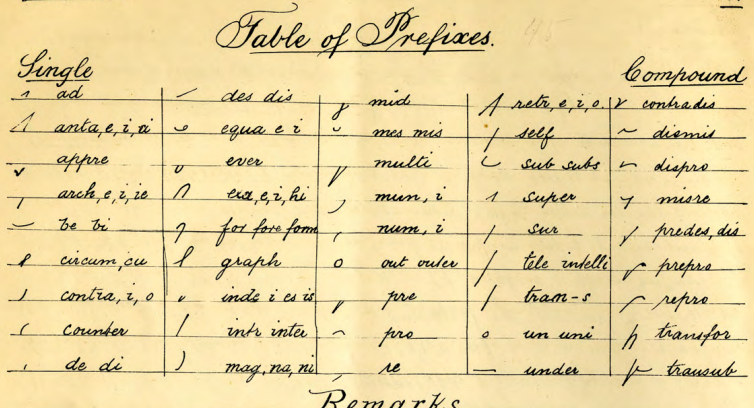 Table of Prefixes. 45
Single Compound
ad des dis mid retr, e, i, o. contradis
anta, e, i, ti equa e i mes mis self dismis
appre ever multi sub subs dispro
arch, e, i, ie exa, e, i, hi mun, i super misre
be bi for fore form num, i sur predes, dis
circum, cu graph out outer tele intelli prepro
contra, i, o inde i es is pre tran-s repro
counter intr inter pro un uni transfor
de di mag, na, ni re under transub
Remarks